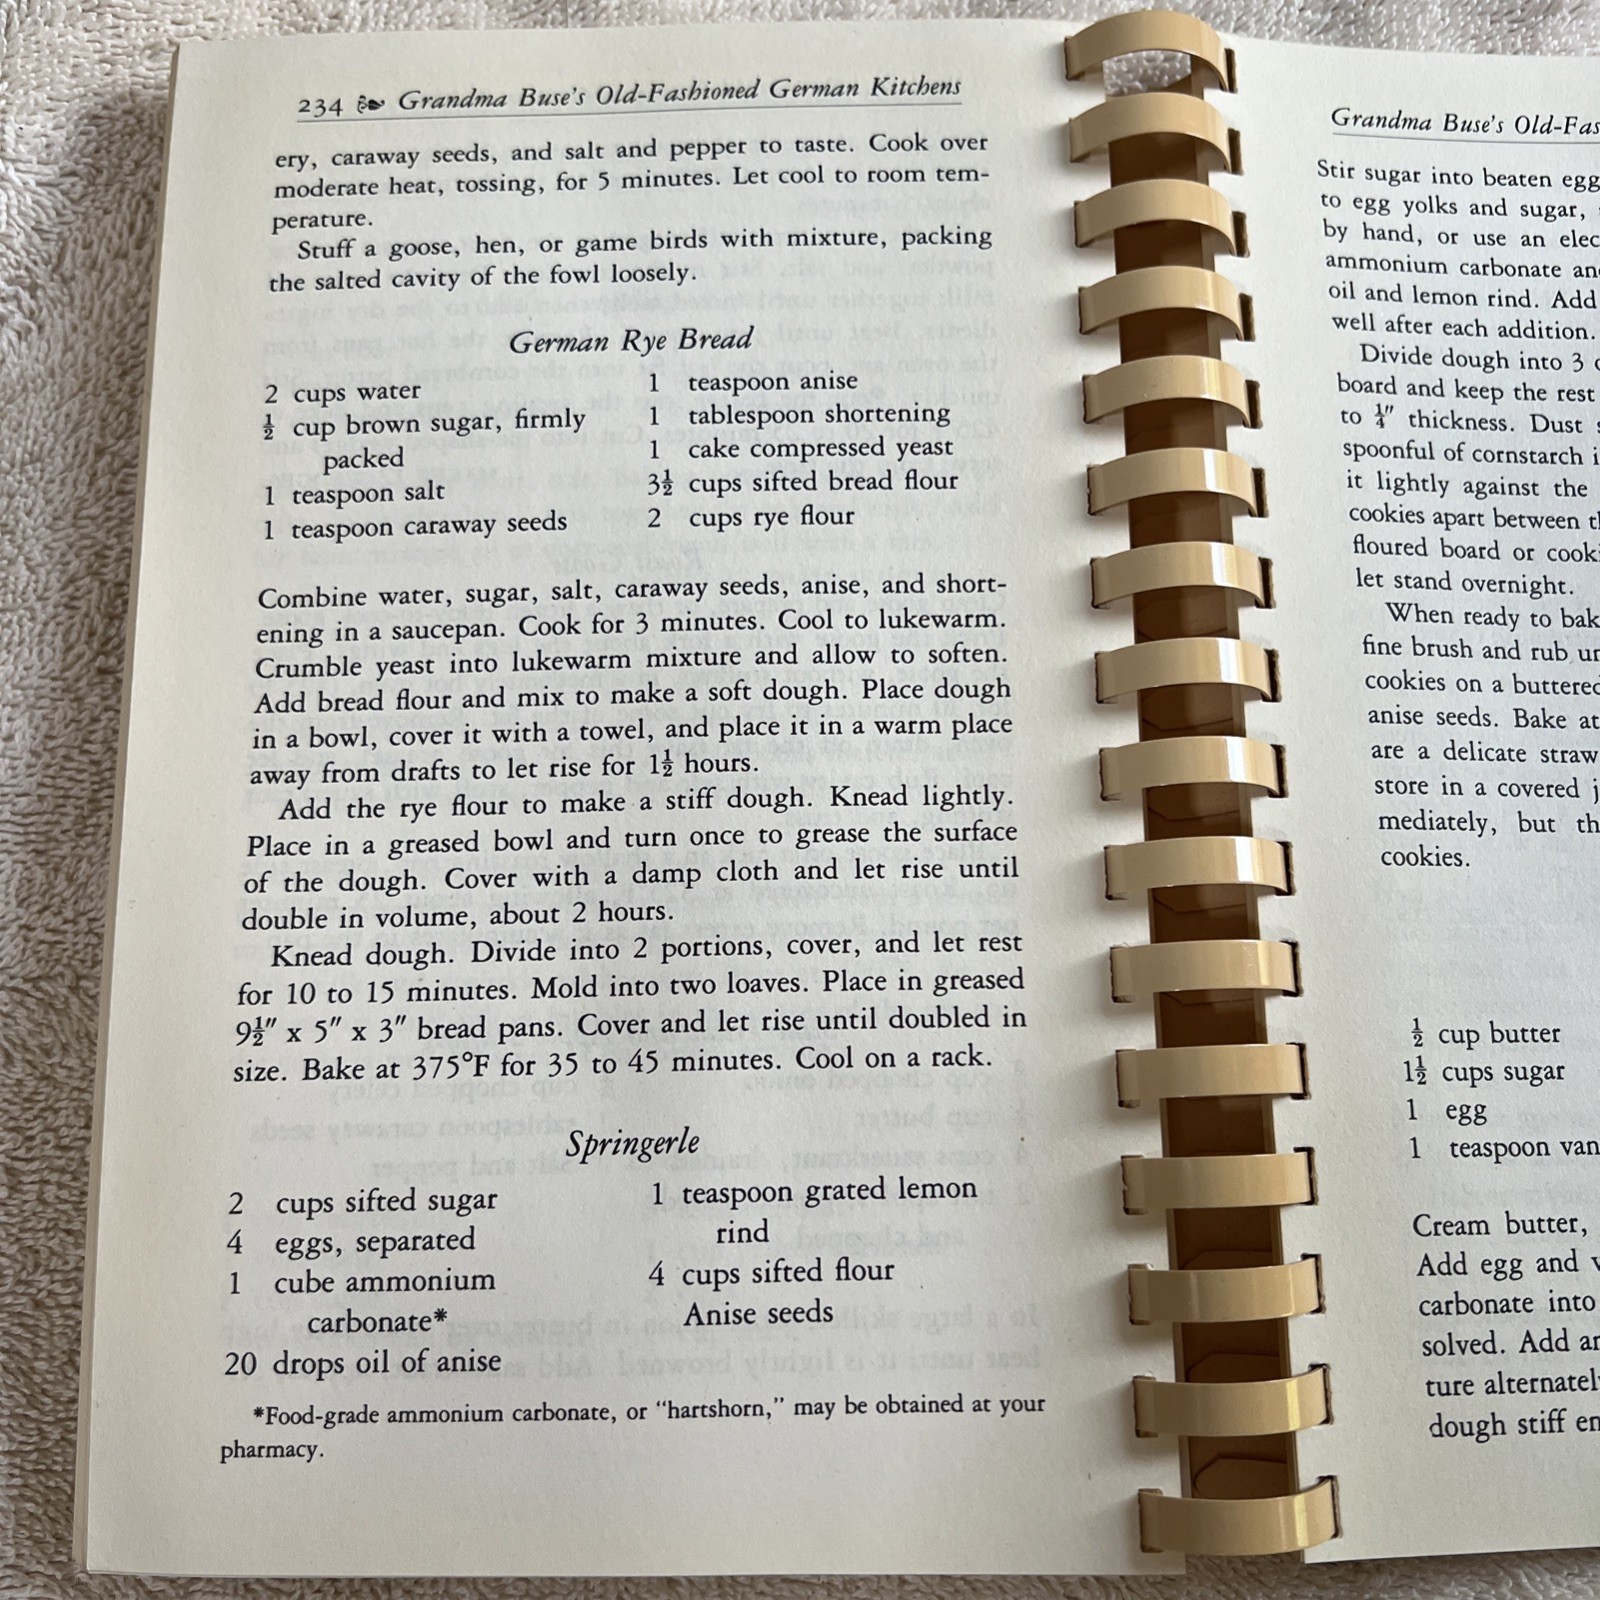 234 Grandma Buse's Old-Fashioned German Kitchens
ery, caraway seeds, and salt and pepper to taste. Cook over
moderate heat, tossing, for 5 minutes. Let cool to room tem-
perature.
Stuff a goose, hen, or game birds with mixture, packing
the salted cavity of the fowl loosely.
German Rye Bread
2 cups water
½ cup brown sugar, firmly
packed
1 teaspoon salt
1 teaspoon caraway seeds
1 teaspoon anise
1 tablespoon shortening
1 cake compressed yeast
3½ cups sifted bread flour
2 cups rye flour
Combine water, sugar, salt, caraway seeds, anise, and short-
ening in a saucepan. Cook for 3 minutes. Cool to lukewarm.
Crumble yeast into lukewarm mixture and allow to soften.
Add bread flour and mix to make a soft dough. Place dough
in a bowl, cover it with a towel, and place it in a warm place
away from drafts to let rise for 1½ hours.
Add the rye flour to make a stiff dough. Knead lightly.
Place in a greased bowl and turn once to grease the surface
of the dough. Cover with a damp cloth and let rise until
double in volume, about 2 hours.
Knead dough. Divide into 2 portions, cover, and let rest
for 10 to 15 minutes. Mold into two loaves. Place in greased
9½" x 5" x 3" bread pans. Cover and let rise until doubled in
size. Bake at 375°F for 35 to 45 minutes. Cool on a rack.
Springerle
2 cups sifted sugar
4 eggs, separated
1 cube ammonium
carbonate*
20 drops oil of anise
1 teaspoon grated lemon
rind
4 cups sifted flour
Anise seeds
*Food-grade ammonium carbonate, or "hartshorn," may be obtained at your
pharmacy.
Grandma Buse's Old-Fas
Stir sugar into beaten egg
to egg yolks and sugar,
by hand, or use an elec
ammonium carbonate an
oil and lemon rind. Add
well after each addition.
Divide dough into 3
board and keep the rest
to ¼" thickness. Dust
spoonful of cornstarch i
it lightly against the
cookies apart between t
floured board or cook
let stand overnight.
When ready to bak
fine brush and rub un
cookies on a buttered
anise seeds. Bake at
are a delicate straw
store in a covered j
mediately, but th
cookies.
½ cup butter
1½ cups sugar
1 egg
1 teaspoon van
Cream butter,
Add egg and v
carbonate into
solved. Add an
ture alternatel
dough stiff en